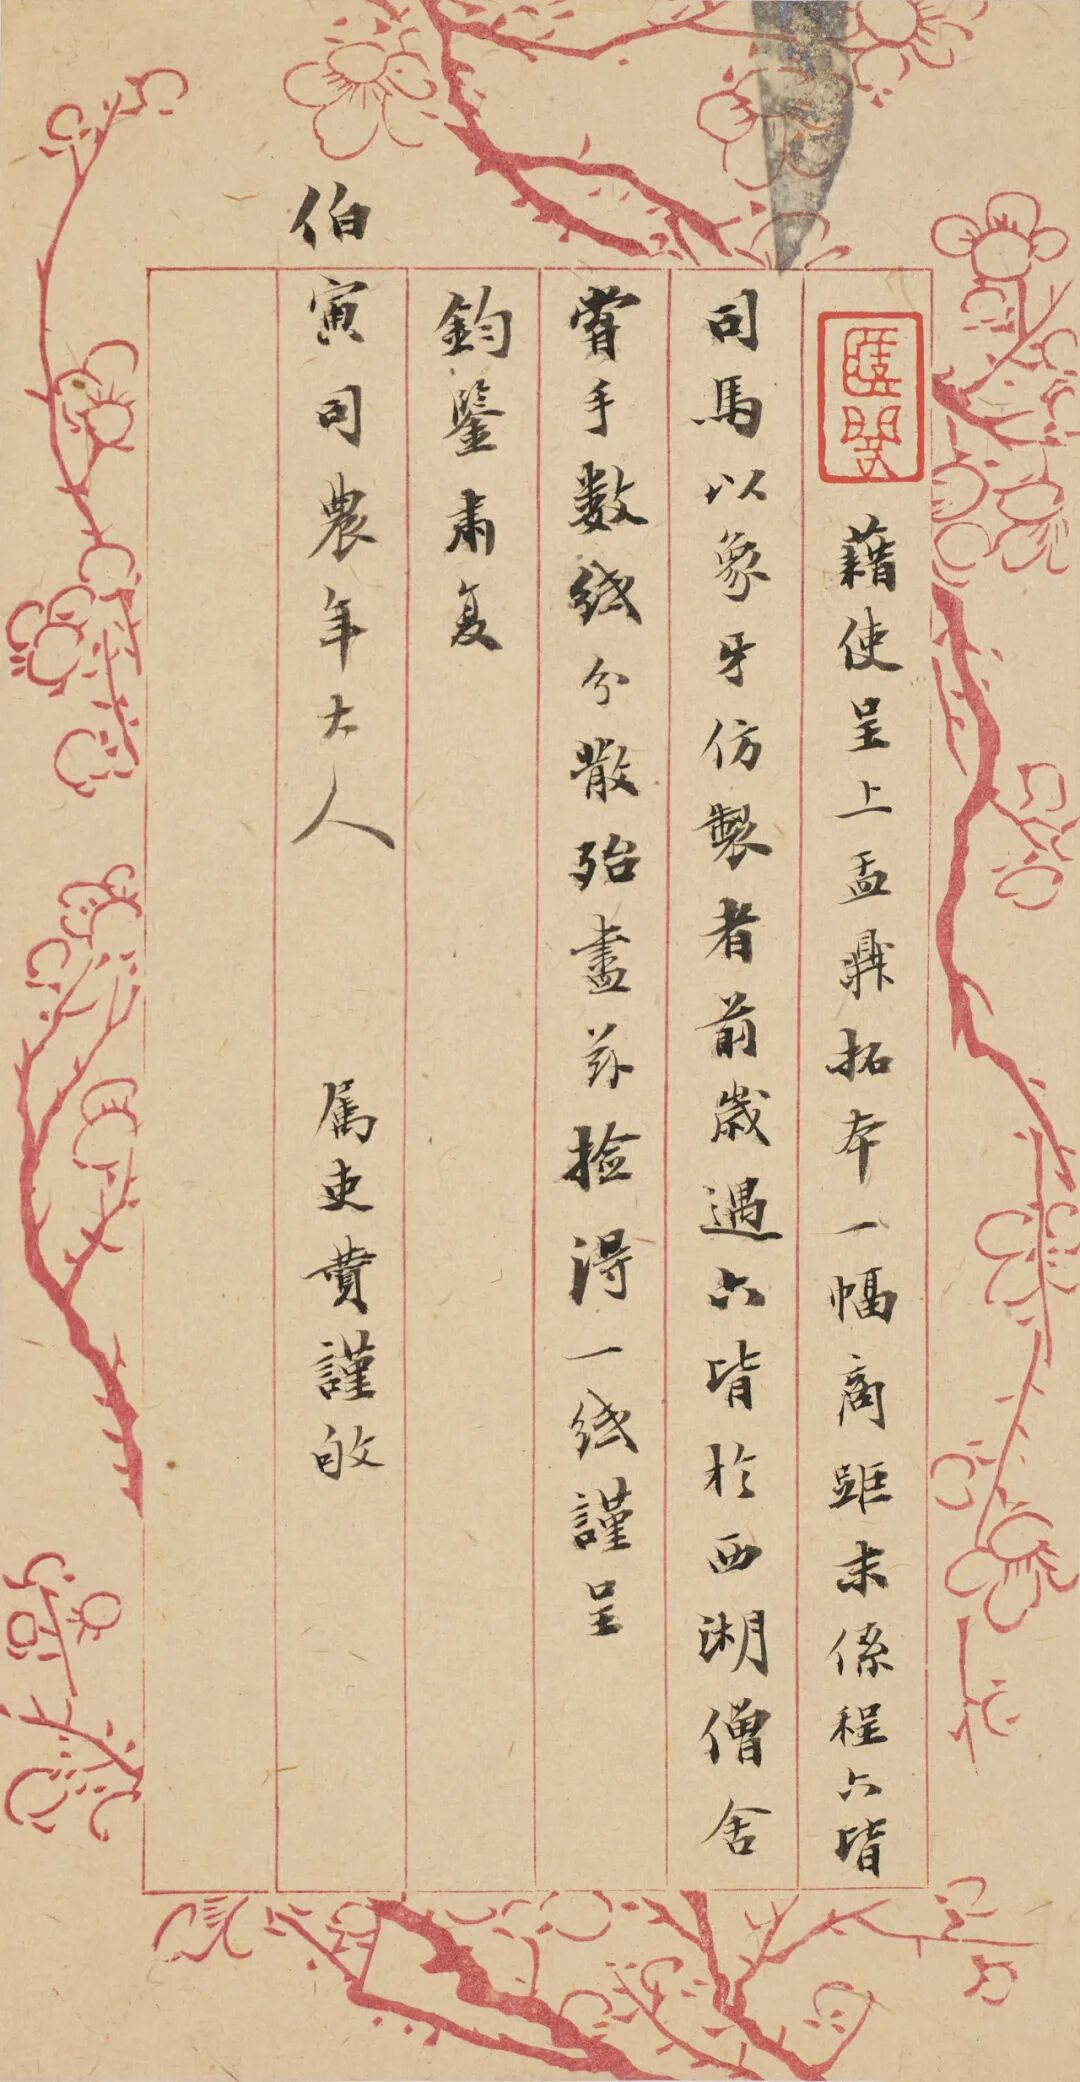 藉使呈上盂鼎拓本一幅商距末係程六皆
司馬以象牙仿製者前歲遇六皆於西湖僧舍
手数紙分散殆盡茲捡得一紙謹呈
鈞鑒肅复
伯寅司農年大人 属吏費謹啟